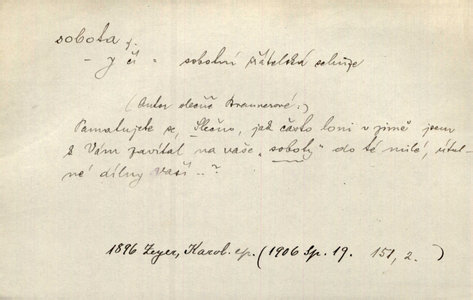 sobota f.
- y čí = sobotní přátelská schůze
(Autor slečně Braunerové:)
Pamatujete se, Slečno, jak často loni v zimě jsem
k Vám zavítal na vaše „soboty" do té milé, útul-
né dílny Vaší ..?
1896 Zeyer, Karol. ep. (1906 Sp. 19. 151, 2.)